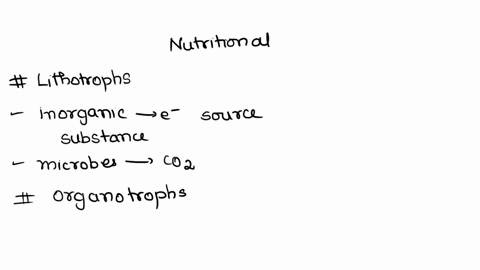 Nutritional
# Lithotrophs
- inorganic → e⁻ source
substance
- microbes → CO2
# Organotrophs